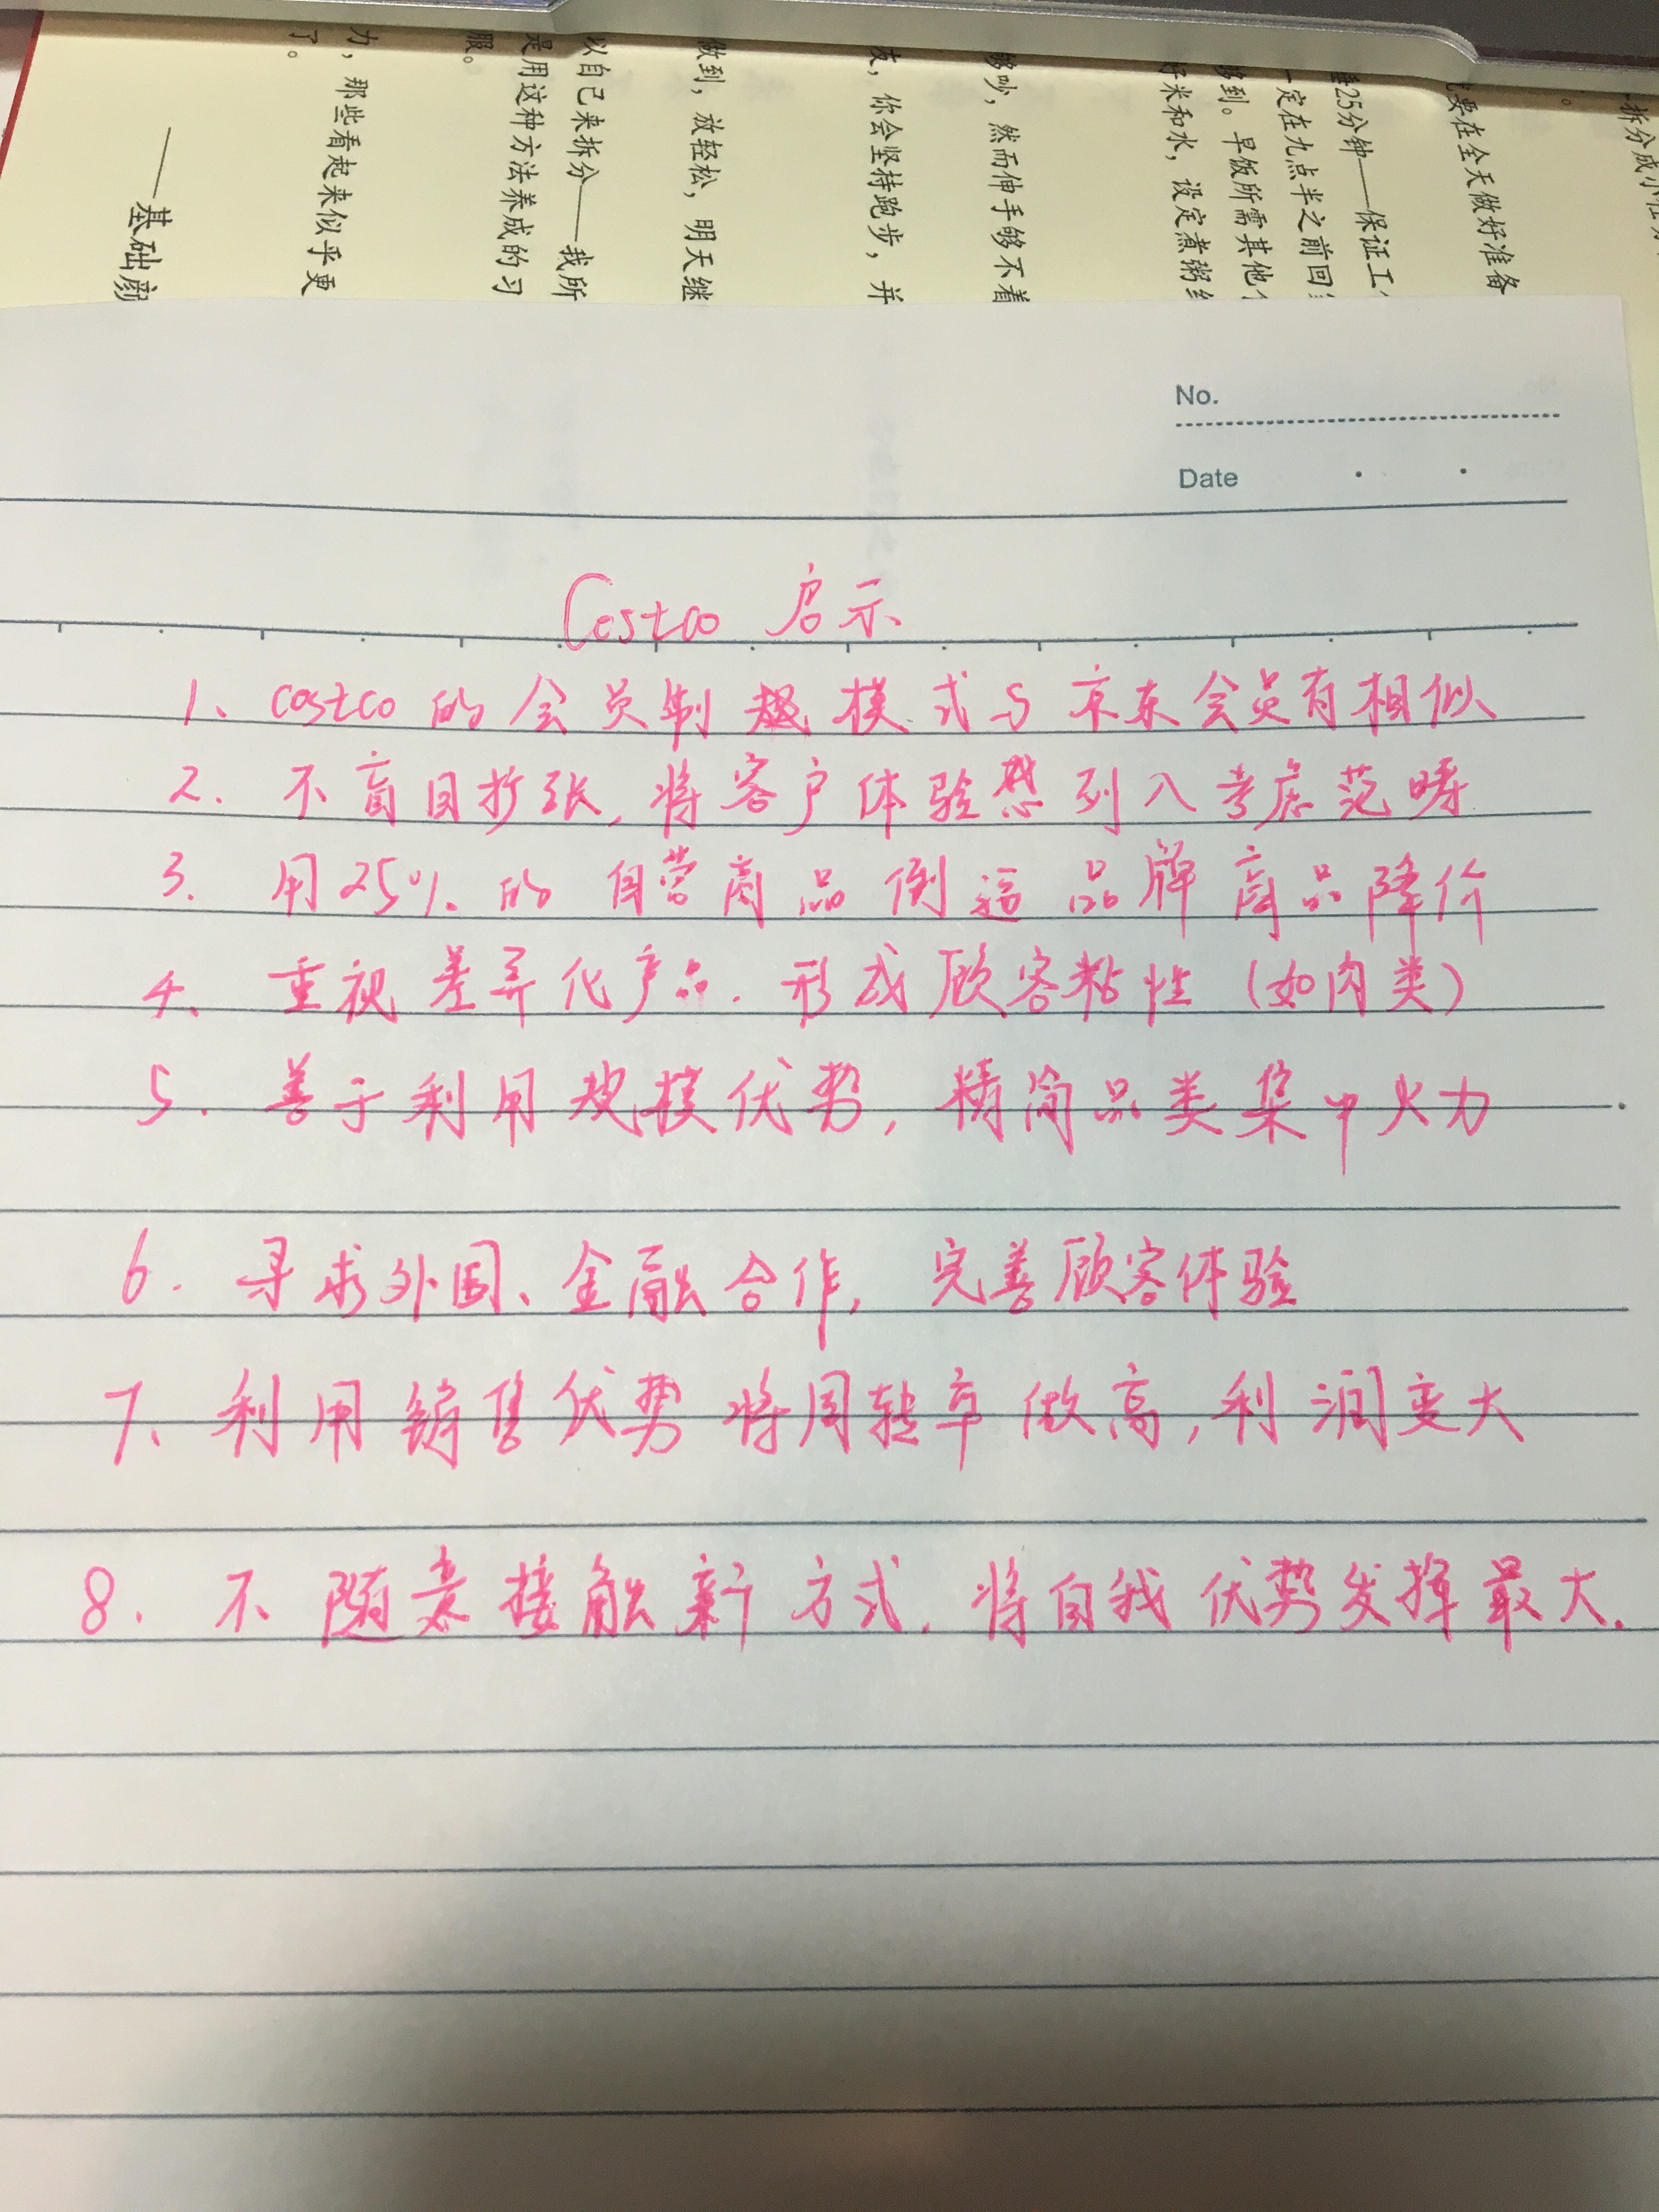 力，那些看起来似乎更
了。
——基础颜
以自己来拆分——我所
是用这种方法养成的习
服。
做到，放轻松，明天继
友，你会坚持跑步，并
够吵，然而伸手够不着
要在全天做好准备
25分钟——保证工
一定在九点半之前回
够到。早饭所需其他
好米和水，设定煮粥
拆分成小
No.
Date
Costco 启示
1、costco的会员制 模式与京东会员有相似
2. 不盲目扩张，将客户体验感列入考虑范畴
3. 用25%的自营商品倒逼品牌商品降价
4、重视差异化产品．形成顾客粘性（如肉类）
5. 善于利用规模优势，精简品类集中火力
6. 寻求外国、金融合作，完善顾客体验
7、利用销售优势将周转率做高，利润变大
8. 不随意接触新方式．将自我优势发挥最大．